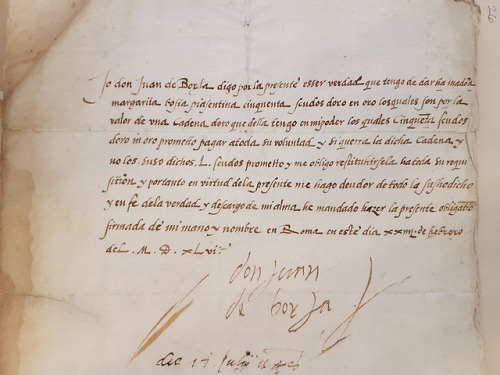 Io don Juan de BorJa digo por la presente esser verdad que tengo de dar ha madõna
margarita piasentina cinquenta scudos doro en oro los quales son por la
valor de vna Cadena doro que della tengo en mi poder los quales Cinquẽta scudos
doro in oro prometto pagar a toda su voluntad y si querra la dicha Cadena y
no los suso dichos .L. scudos prometto y me obligo restituhirsela ha toda su requi
sition y portanto en virtud dela presente me hago deudor de todo lo susodicho
y en fe dela verdad y descargo de mi alma he mandado hazer la presente
firmada de mi mano y nombre en Roma en este dia de febrero
del .M. D. xLvi
don Juan
de borJa
26